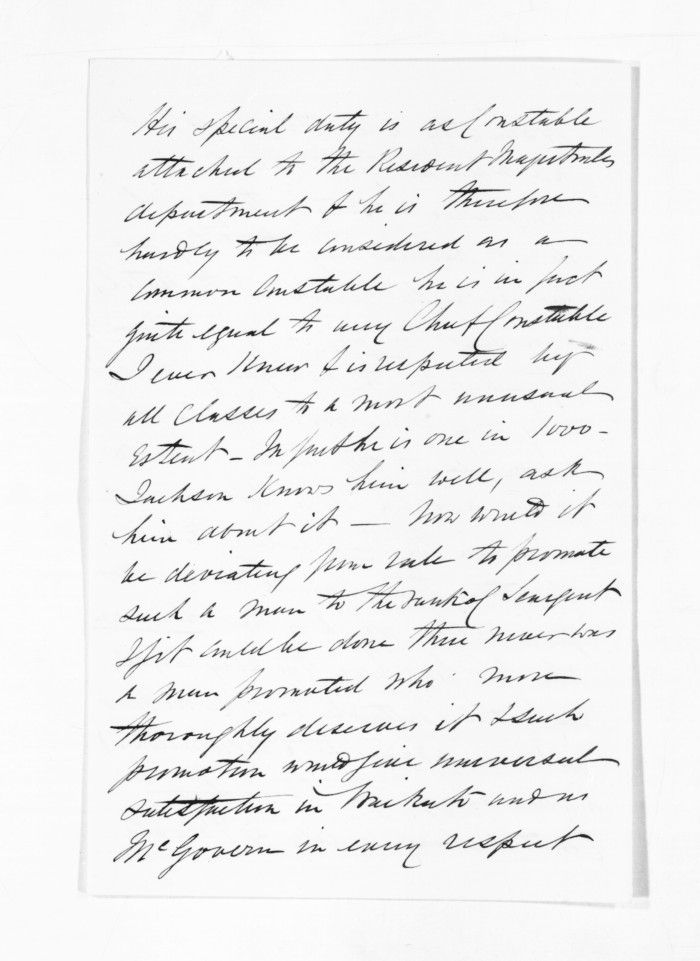 His special duty is as Constable
attached to the Resident Magistrates
department & he is therefore
hardly to be considered as a
common Constable he is in fact
quite equal to any Chief Constable
I ever knew & is respected by
all classes to a most unusual
Extent – In fact he is one in 1000 –
Jackson knows him well, ask
him about it – Now would it
be deviating from rule to promote
such a man to the rank of Seargent
If it could be done there never was
a man promoted who more
thoroughly deserves it & such
promotion would give universal
satisfaction in Waikato and as
McGovern in every respect